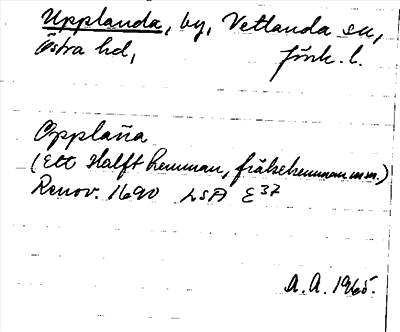 Upplanda, by, Vetlanda sn,
Östra hd, Jönk. l.
Opplaña
(Ett Halft hemman, frälsehemman m.m.)
Renov. 1690 LSA E37
A.A. 1965.